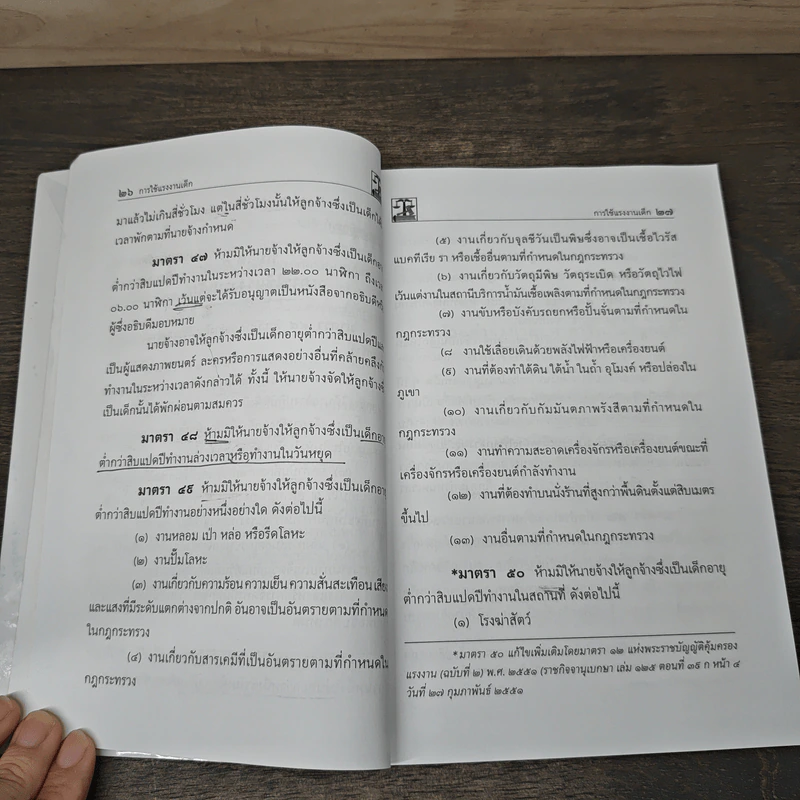 ๒๖ การใช้แรงงานเด็ก
มาแล้วไม่เกินสี่ชั่วโมง แต่ในสี่ชั่วโมงนั้นให้ลูกจ้างซึ่งเป็นเด็กได้
เวลาพักตามที่นายจ้างกำหนด
มาตรา ๔๗ ห้ามมิให้นายจ้างให้ลูกจ้างซึ่งเป็นเด็ก
ต่ำกว่าสิบแปดปีทำงานในระหว่างเวลา ๒๒.๐๐ นาฬิกา ถึงเวลา
๐๖.๐๐ นาฬิกา เว้นแต่จะได้รับอนุญาตเป็นหนังสือจากอธิบดี
ผู้ซึ่งอธิบดีมอบหมาย
นายจ้างอาจให้ลูกจ้างซึ่งเป็นเด็กอายุต่ำกว่าสิบแปดปี
เป็นผู้แสดงภาพยนตร์ ละครหรือการแสดงอย่างอื่นที่คล้ายคลึง
ทำงานในระหว่างเวลาดังกล่าวได้ ทั้งนี้ ให้นายจ้างจัดให้ลูกจ้าง
เป็นเด็กนั้นได้พักผ่อนตามสมควร
มาตรา ๔๘ ห้ามมิให้นายจ้างให้ลูกจ้างซึ่งเป็นเด็ก
ต่ำกว่าสิบแปดปีทำงานล่วงเวลาหรือทำงานในวันหยุด
มาตรา ๔๙ ห้ามมิให้นายจ้างให้ลูกจ้างซึ่งเป็นเด็กอายุ
ต่ำกว่าสิบแปดปีทำงานอย่างหนึ่งอย่างใด ดังต่อไปนี้
(๑) งานหลอม เป่า หล่อ หรือรีดโลหะ
(๒) งานปั๊มโลหะ
(๓) งานเกี่ยวกับความร้อน ความเย็น ความสั่นสะเทือน เสียง
และแสงที่มีระดับแตกต่างจากปกติ อันอาจเป็นอันตรายตามที่กำหนด
ในกฎกระทรวง
(๔) งานเกี่ยวกับสารเคมีที่เป็นอันตรายตามที่กำหนดใน
กฎกระทรวง
การใช้แรงงานเด็ก ๒๗
(๕) งานเกี่ยวกับจุลชีวันเป็นพิษซึ่งอาจเป็นเชื้อไวรัส
แบคทีเรีย รา หรือเชื้ออื่นตามที่กำหนดในกฎกระทรวง
(๖) งานเกี่ยวกับวัตถุมีพิษ วัตถุระเบิด หรือวัตถุไวไฟ
เว้นแต่งานในสถานีบริการน้ำมันเชื้อเพลิงตามที่กำหนดในกฎกระทรวง
(๗) งานขับหรือบังคับรถยกหรือปั้นจั่นตามที่กำหนดใน
กฎกระทรวง
(๘ งานใช้เลื่อยเดินด้วยพลังไฟฟ้าหรือเครื่องยนต์
(๙) งานที่ต้องทำใต้ดิน ใต้น้ำ ในถ้ำ อุโมงค์ หรือปล่องใน
ภูเขา
(๑๐) งานเกี่ยวกับกัมมันตภาพรังสีตามที่กำหนดใน
กฎกระทรวง
(๑๑) งานทำความสะอาดเครื่องจักรหรือเครื่องยนต์ขณะที่
เครื่องจักรหรือเครื่องยนต์กำลังทำงาน
(๑๒) งานที่ต้องทำบนนั่งร้านที่สูงกว่าพื้นดินตั้งแต่สิบเมตร
ขึ้นไป
(๑๓) งานอื่นตามที่กำหนดในกฎกระทรวง
*มาตรา ๕๐ ห้ามมิให้นายจ้างให้ลูกจ้างซึ่งเป็นเด็กอายุ
ต่ำกว่าสิบแปดปีทำงานในสถานที่ ดังต่อไปนี้
(๑) โรงฆ่าสัตว์
*มาตรา ๕๐ แก้ไขเพิ่มเติมโดยมาตรา ๑๒ แห่งพระราชบัญญัติคุ้มครอง
แรงงาน (ฉบับที่ ๒) พ.ศ. ๒๕๕๑ (ราชกิจจานุเบกษา เล่ม ๑๒๕ ตอนที่ ๓๙ ก หน้า ๔
วันที่ ๒๗ กุมภาพันธ์ ๒๕๕๑